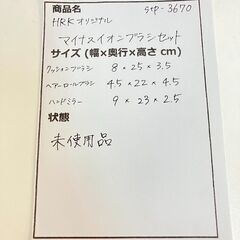 商品名 stp-3670
HRKオリジナル
マイナスイオンブラシセット
サイズ (幅×奥行×高さ cm)
クッションブラシ 8 × 25 × 3.5
ヘアーロールブラシ 4.5 × 22 × 4.5
ハンドミラー 9 × 23 × 2.5
状態
未使用品